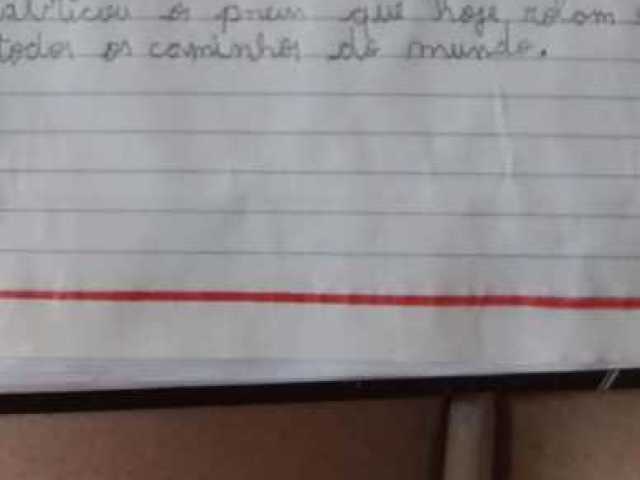 os pneus que hoje rolam
todos os caminhos do mundo.